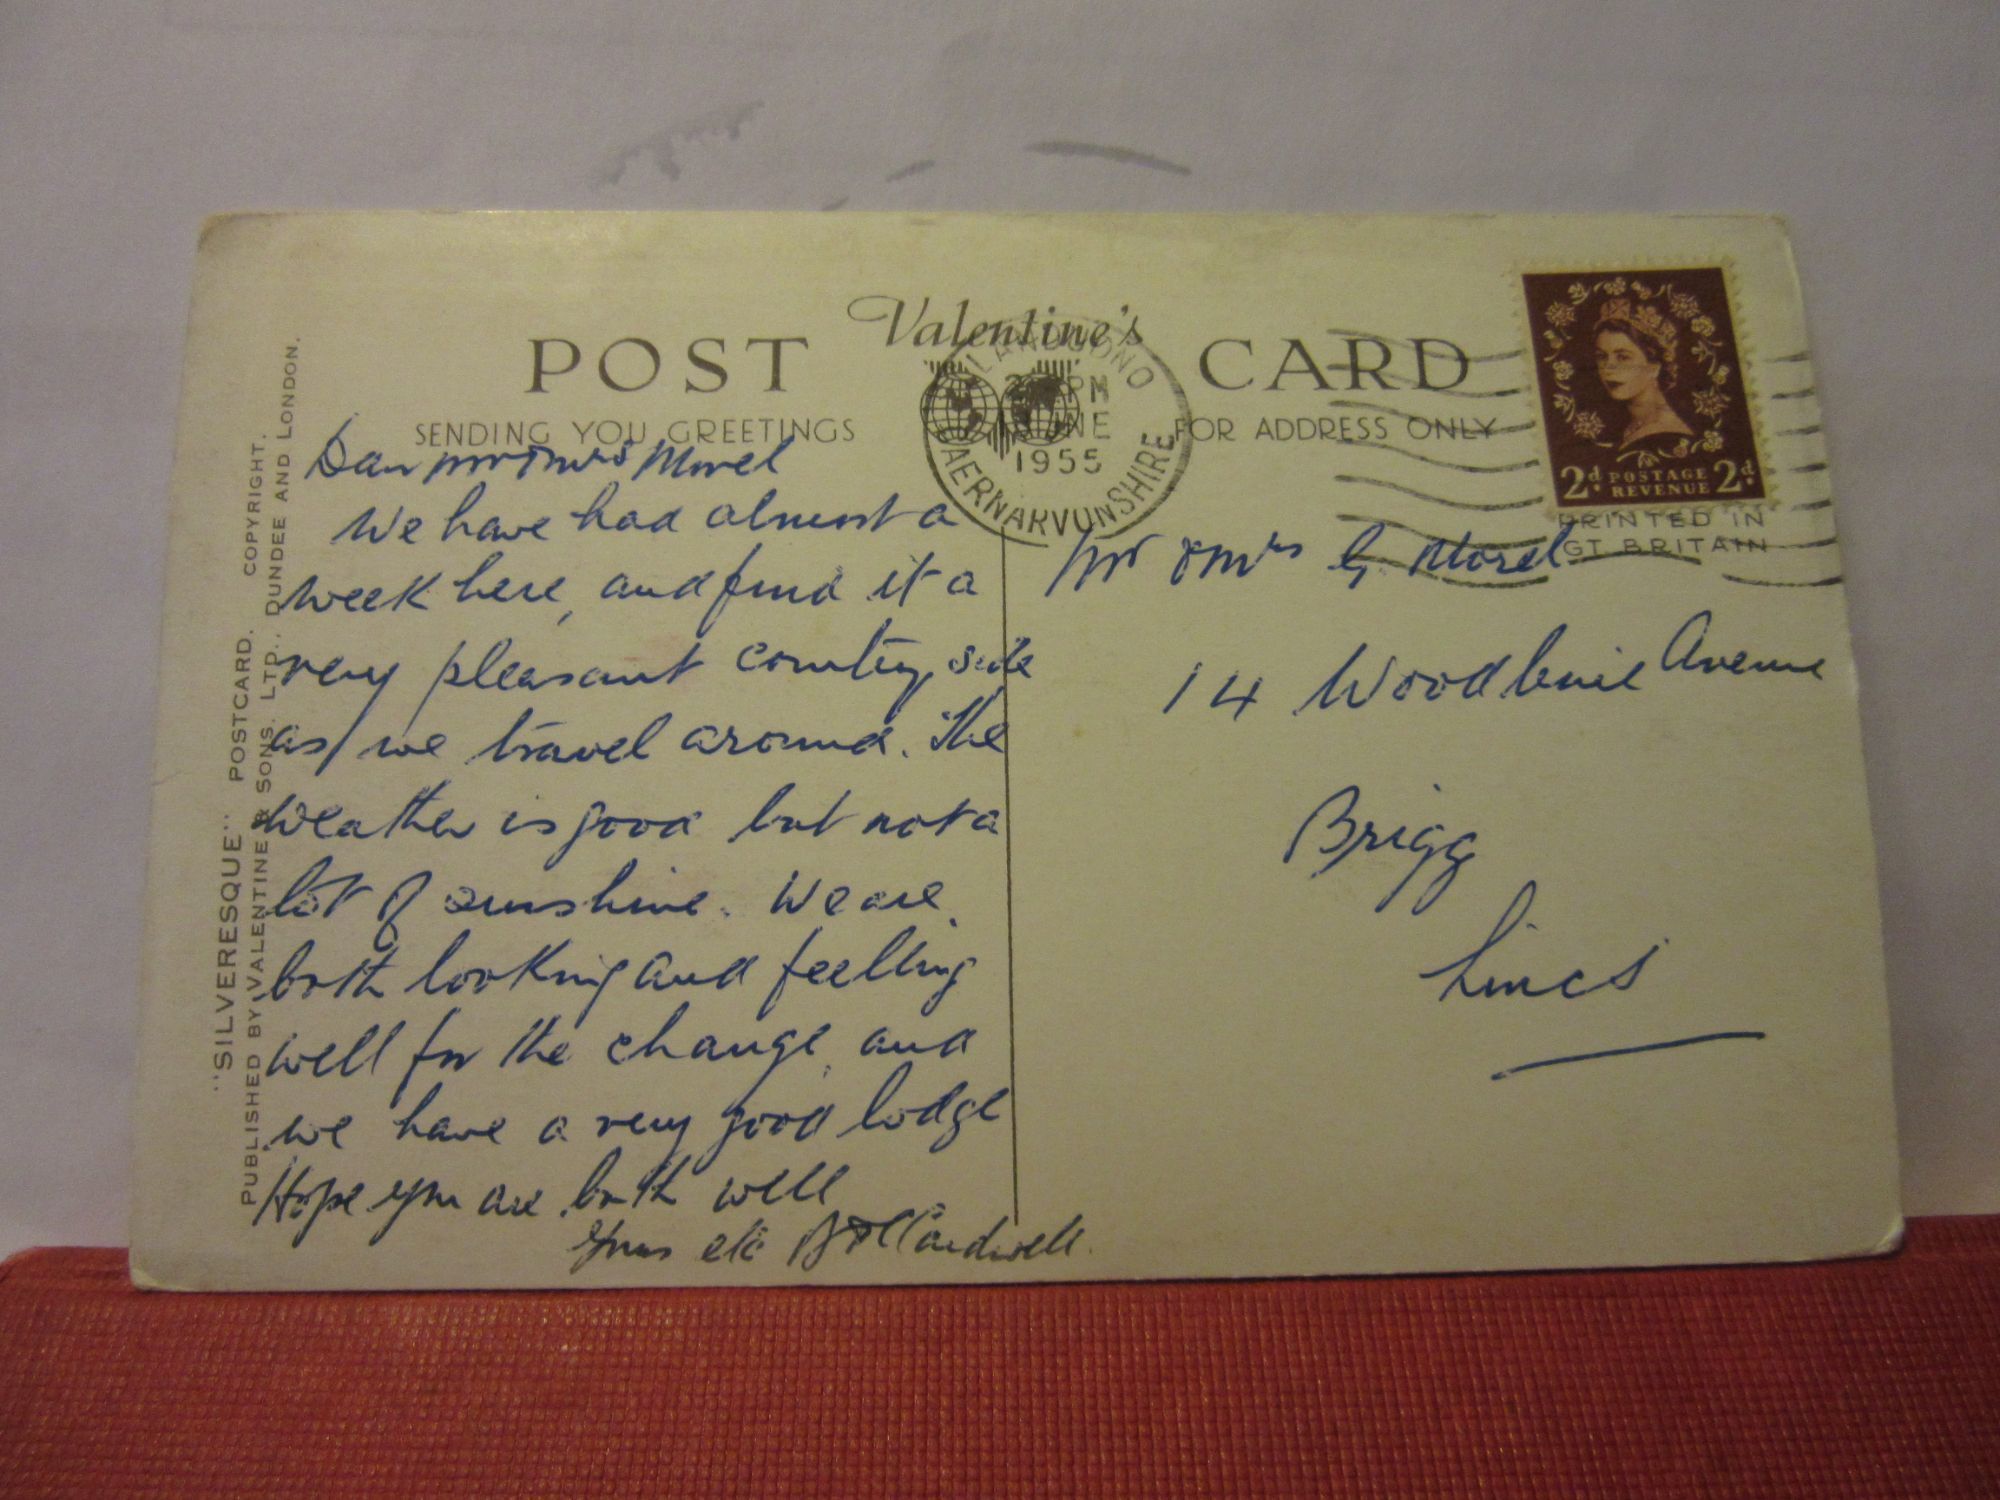 Valentine's
POST CARD
SENDING YOU GREETINGS
FOR ADDRESS ONLY
LLANDUDNO
PM
JNE
1955
CAERNARVONSHIRE
2d. POSTAGE 2d.
REVENUE
PRINTED IN
GT BRITAIN
"SILVERESQUE" POSTCARD. COPYRIGHT.
PUBLISHED BY VALENTINE & SONS. LTD., DUNDEE AND LONDON.
Dear Mr & Mrs Morel
We have had almost a
week here, and find it a
very pleasant country side
as we travel around. The
weather is good but not a
lot of sunshine. We are
both looking and feelling
well for the change and
we have a very good lodge
Hope you are both well
Yours etc Cardwell.
Mr & Mrs G. Morel
14 Woodbine Avenue
Brigg
Lincs